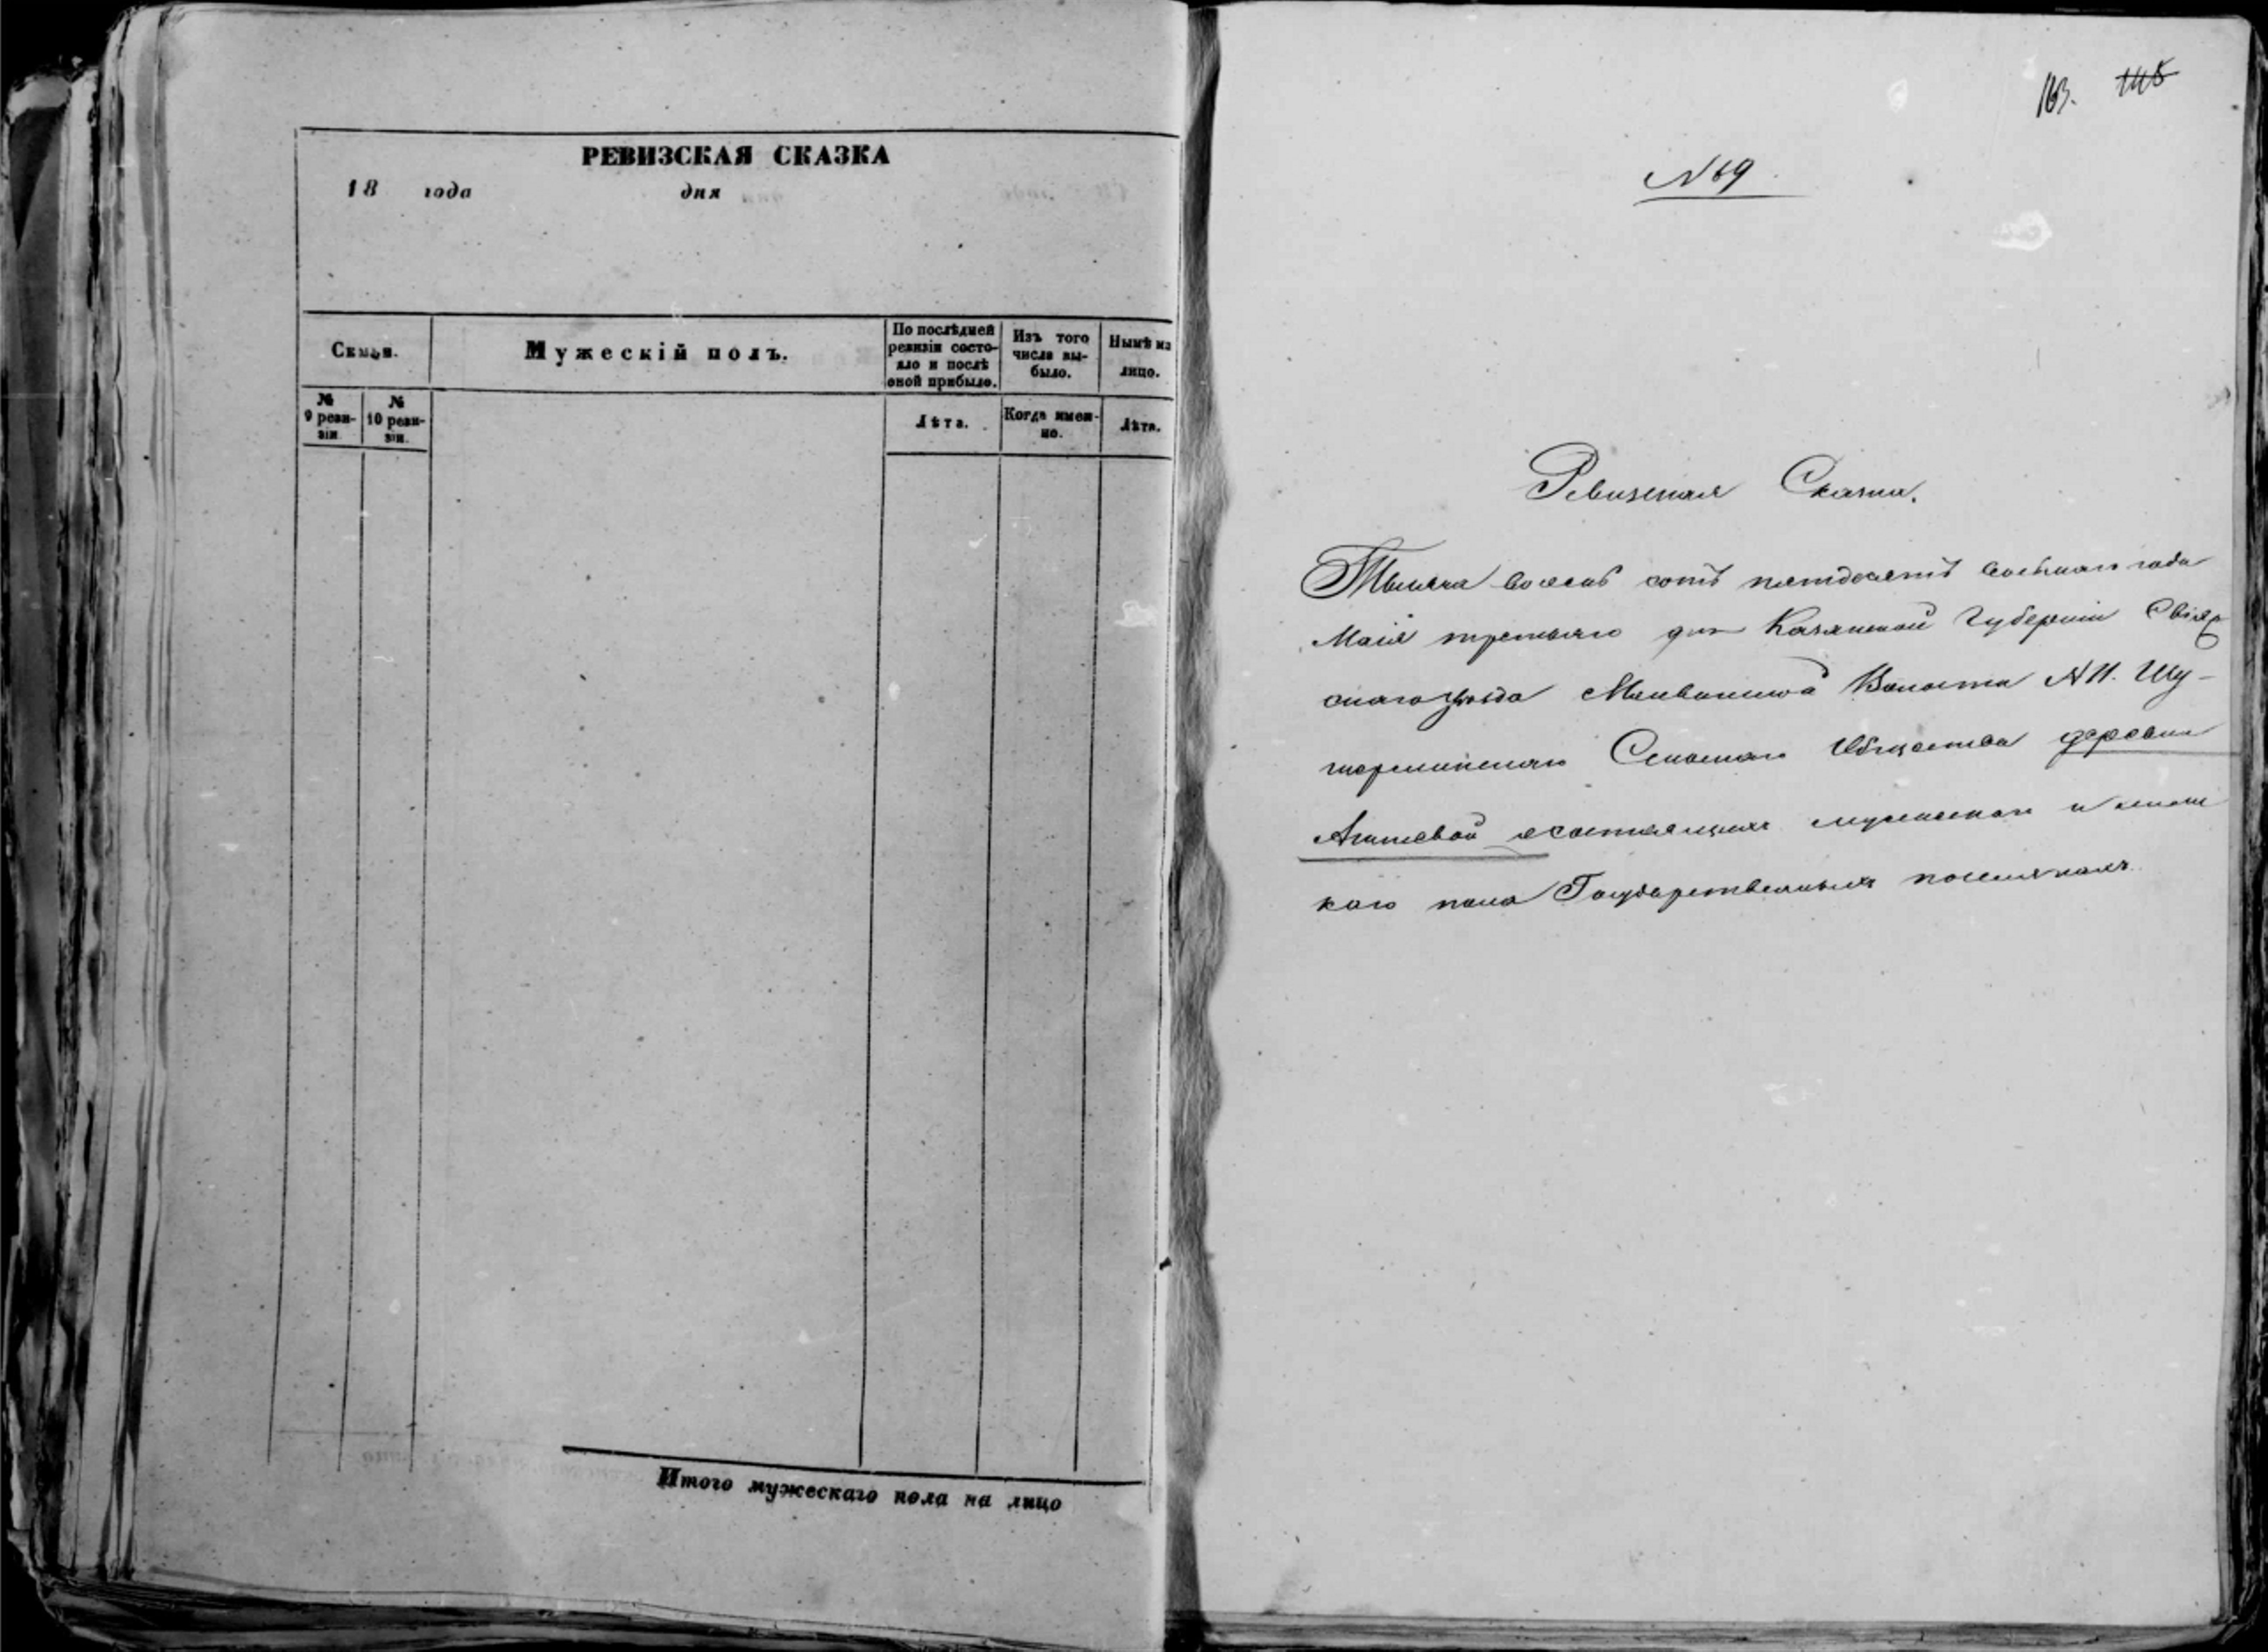 РЕВИЗСКАЯ СКАЗКА
18 года дня
Семьи.
Мужескій полъ.
По послѣдней ревизіи состо-
яло и послѣ
оной прибыло.
Изъ того
числа вы-
было.
Нынѣ на
лицо.
№
9 реви-
зіи.
№
10 реви-
зіи.
Лѣта.
Когда имен-
но.
Лѣта.
Итого мужескаго пола на лицо
163. 145
N 69.
Ревизская Сказка.
Тысяча восемь сотъ пятдесятъ восьмаго года
Маія третьяго дня Казанской Губерніи Свіяж
скаго уѣзда Волости N 11. Шу-
Сельскаго Общества деревни
Агишевой о состоящихъ мужескаго и женс
каго пола Государственныхъ поселянахъ